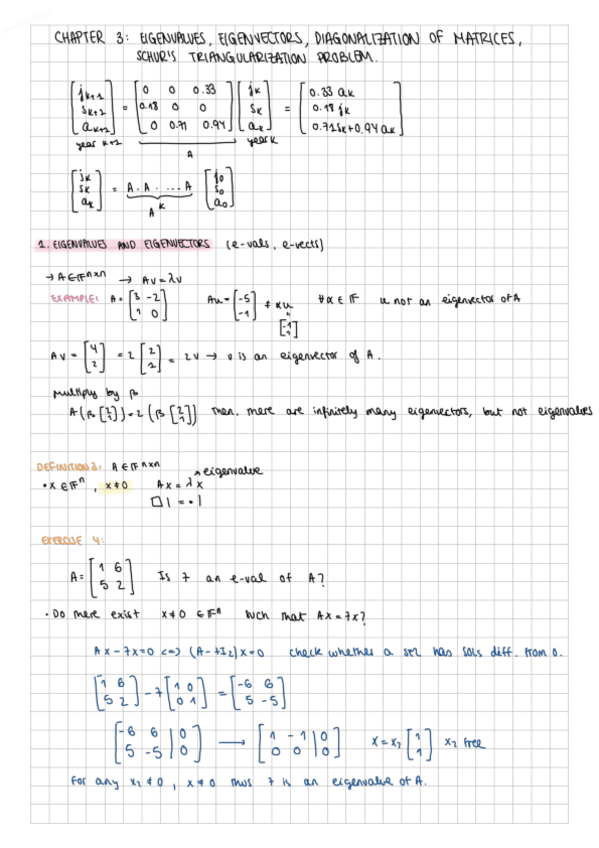 CHAPTER 3: EIGENVALUES, EIGENVECTORS, DIAGONALIZATION OF MATRICES,
SCHUR'S TRIANGULARIZATION PROBLEM.
[j_{k+1}; s_{k+1}; a_{k+1}] = [0 0 0.33; 0.18 0 0; 0 0.71 0.94] [j_k; s_k; a_k] = [0.33 a_k; 0.18 j_k; 0.71 s_k + 0.94 a_k]
year k+1 A year k
[j_k; s_k; a_k] = A. A. ... . A [j_0; s_0; a_0]
A^k
1. EIGENVALUES AND EIGENVECTORS (e-vals, e-vects)
→ A ∈ F^{n×n} → Av = λv
EXAMPLE: A = [3 -2; 1 0] Au = [-5; -1] ≠ αu ∀α ∈ F u not an eigenvector of A
[-1; 1]
Av = [4; 2] = 2 [2; 1] = 2v → v is an eigenvector of A.
Multiply by β
A(β [2; 1]) = 2 (β [2; 1]) Then, there are infinitely many eigenvectors, but not eigenvalues
DEFINITION 2: A ∈ F^{n×n} → eigenvalue
• x ∈ F^n, x ≠ 0 Ax = λx
□ | = • |
EXERCISE 4:
A = [1 6; 5 2] Is 7 an e-val of A?
• Do there exist x ≠ 0 ∈ F^n such that Ax = 7x?
Ax - 7x = 0 <=> (A - 7I_2)x = 0 check whether a has sols diff. from 0.
[1 6; 5 2] - 7 [1 0; 0 1] = [-6 6; 5 -5]
[-6 6 | 0; 5 -5 | 0] → [1 -1 | 0; 0 0 | 0] x = x_2 [1; 1] x_2 free
For any x_2 ≠ 0, x ≠ 0 thus 7 is an eigenvalue of A.